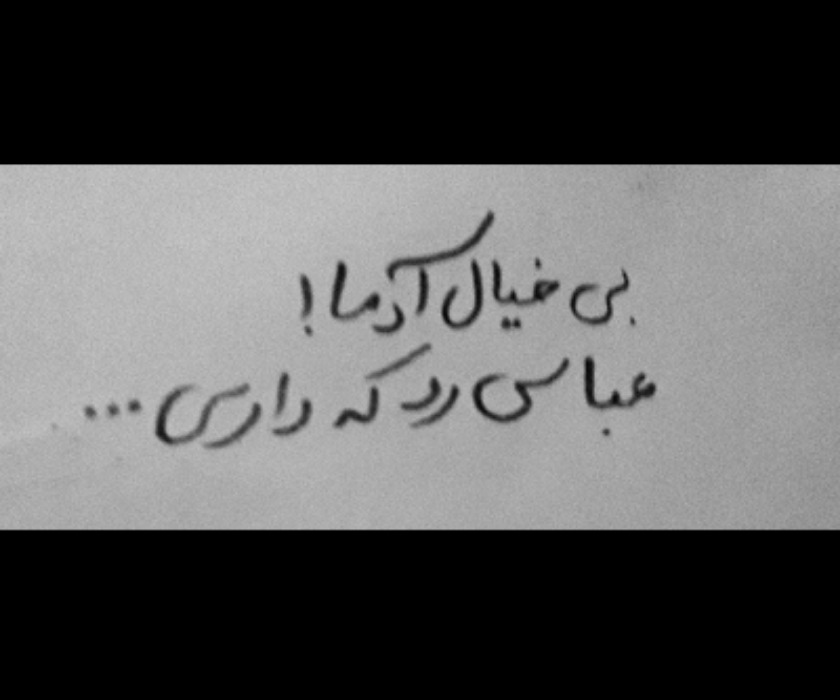 بی خیال آدما!
عباس رو که داری...